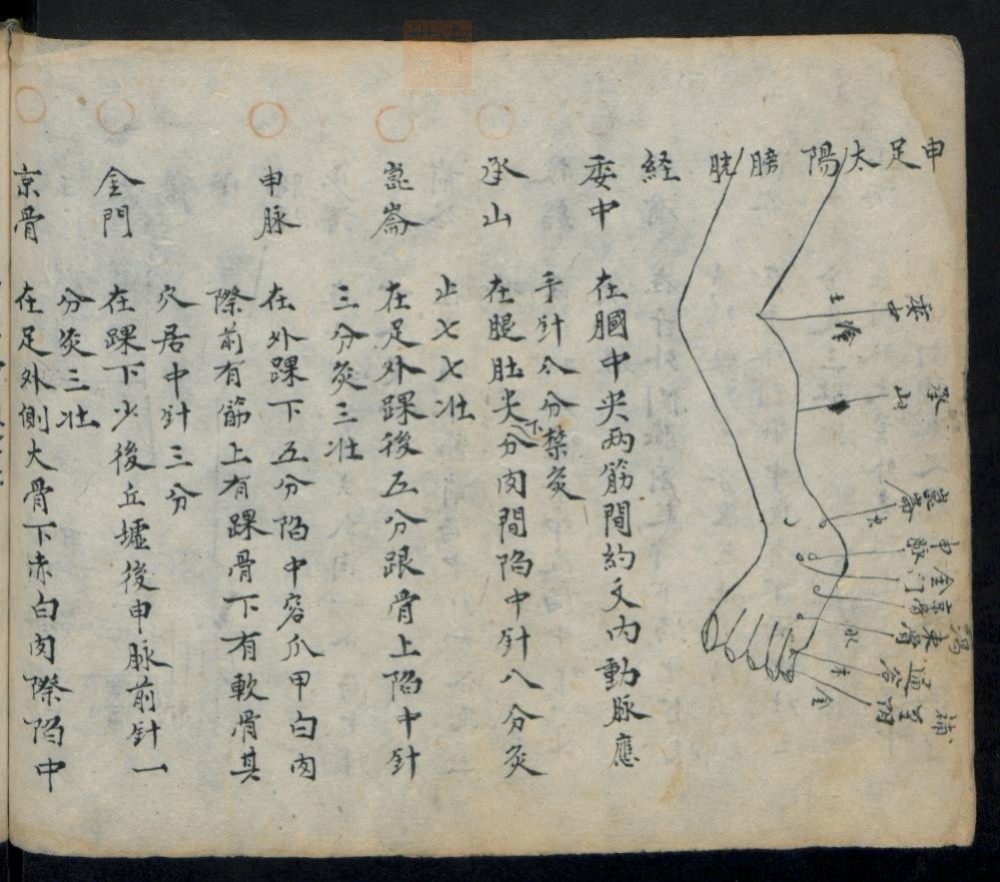 申足太陽膀胱経
委中
承山
崑崙
申脉
金門
京骨
束骨
通谷
至陰
瀉
補
土
合
火
水
木
金
委中
在膕中央两筋間約文内動脉應
手針八分禁灸
承山
在腿肚尖下分肉間陷中針八分灸
止七七壮
崑崙
在足外踝後五分跟骨上陷中針
三分灸三壮
申脉
在外踝下五分陷中容爪甲白肉
際前有筋上有踝骨下有軟骨其
穴居中針三分
金門
在踝下少後丘墟後申脉前針一
分灸三壮
京骨
在足外側大骨下赤白肉際陷中